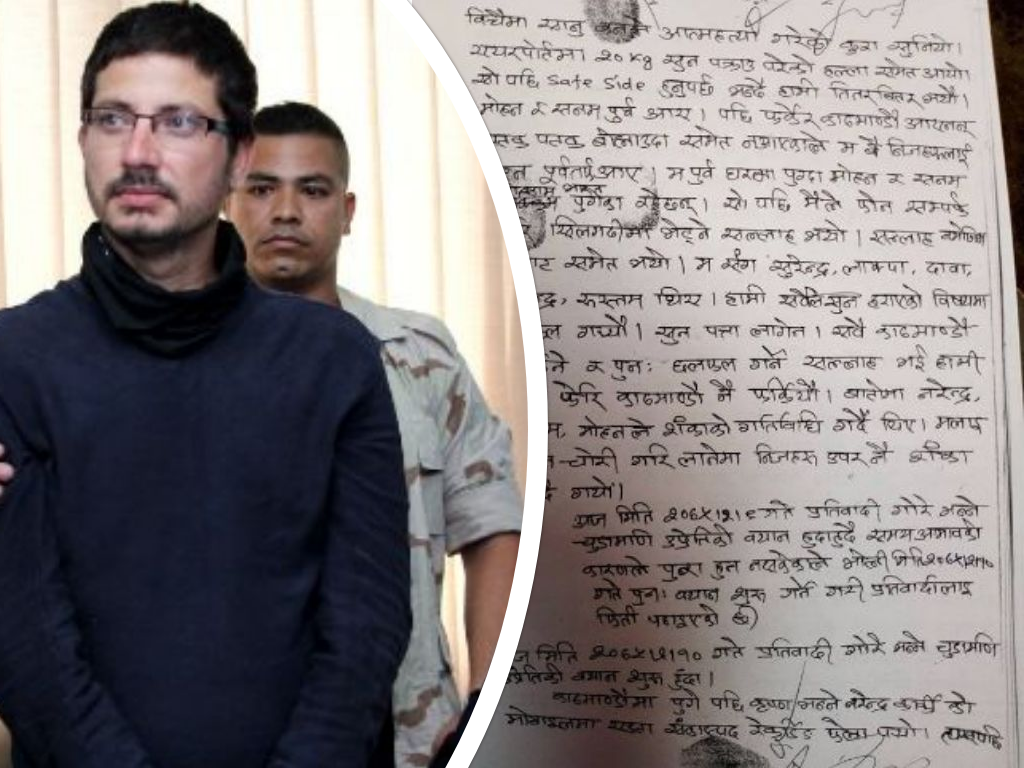 बिचैमा सानु बनले आत्महत्या गरेको कुरा सुनियो।
एयरपोर्टमा २० kg सुन पक्राउ परेको हल्ला समेत आयो।
सो पछि Safe Side हुनुपर्छ भन्दै हामी तितरबितर भयौं।
मोहन र सनम पुर्व आए। पछि फर्केर काठमाण्डौ आएनन्
पटक बोलाउदा समेत नआएकोले म नै निजहरुलाई
पूर्वतर्फ आए। म पुर्व घरमा पुग्दा मोहन र सनम
पुगेका रहेछन्। सो पछि मैले फोन सम्पर्क
सिलगढीमा भेट्ने सल्लाह भयो। सल्लाह बमोजिम
समेत भयो। म सँग सुरेन्द्र, लाक्पा, दावा,
रुस्तम थिए। हामी सबैले सुन हराएको विषयमा
गर्यौ। सुन पत्ता लागेन। सबै काठमाण्डौ
र पुनः छलफल गर्ने सल्लाह भई हामी
फेरि काठमाण्डौ नै फर्कियौं। बाटोमा नरेन्द्र,
मोहनले शंकाको गतिविधि गर्दै थिए। मलाई
चोरी गरि लगेमा निजहरु उपर नै शंका
गयो।
आज मिति २०७४।१२।९ गते प्रतिवादी गोरे भन्ने
चुडामणि उप्रेतिको बयान हुदाहुदै समय अभावको
कारणले पुरा हुन नसकेकोले भोली मिति २०७४।१२।१०
गते पुनः बयान शुरु गर्ने गरी प्रतिवादीलाई
फिर्ता पठाइएको छ)
मिति २०७४।१२।१० गते प्रतिवादी गोरे भन्ने चुडामणि
उप्रेतिको बयान शुरु हुँदा।
काठमाण्डौमा पुगे पछि कृष्ण भन्ने नरेन्द्र कार्की को
मोबाइलमा शंकास्पद रेकर्डिङ फेला पर्यो। त्यसपछि